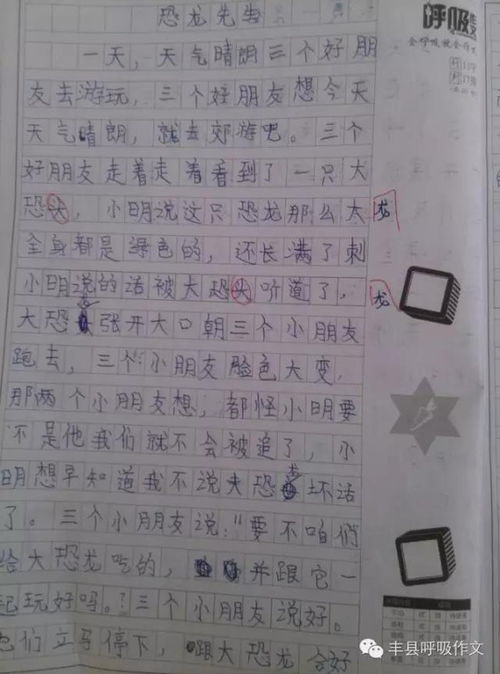 恐龙先生
一天，天气晴朗三个好朋
友去游玩，三个好朋友想今天
天气晴朗，就去郊游吧。三个
好朋友走着走着看到了一只大
恐龙，小明说这只恐龙那么大
龙
全身都是绿色的，还长满了刺
小明说的话被大恐龙听道了，
龙
大恐龙张开大口朝三个小朋友
跑去，三个小朋友脸色大变，
那两个小朋友想，都怪小明要
不是他我们就不会被追了，小
明想早知道我不说大恐龙坏话
了。三个小朋友说："要不咱们
给大恐龙吃的，并跟它一
起玩好吗。？三个小朋友说好。
他们立马停下，跟大恐龙合好
呼吸
会呼吸就会作文
丰县呼吸作文